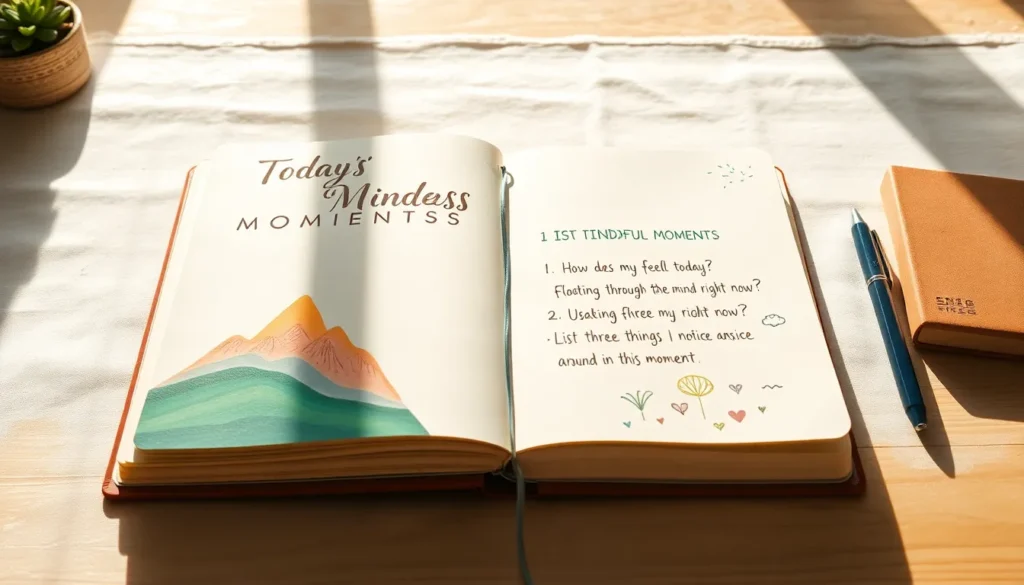 Today's'
Mindess
MOMIENTSS
1 IST TINDFUL MOMENTS
1. How des my feell today?
Floating through the mind right now?
2. Usaking fhree my right now?
· List three things I notice ansice
around in this moment.